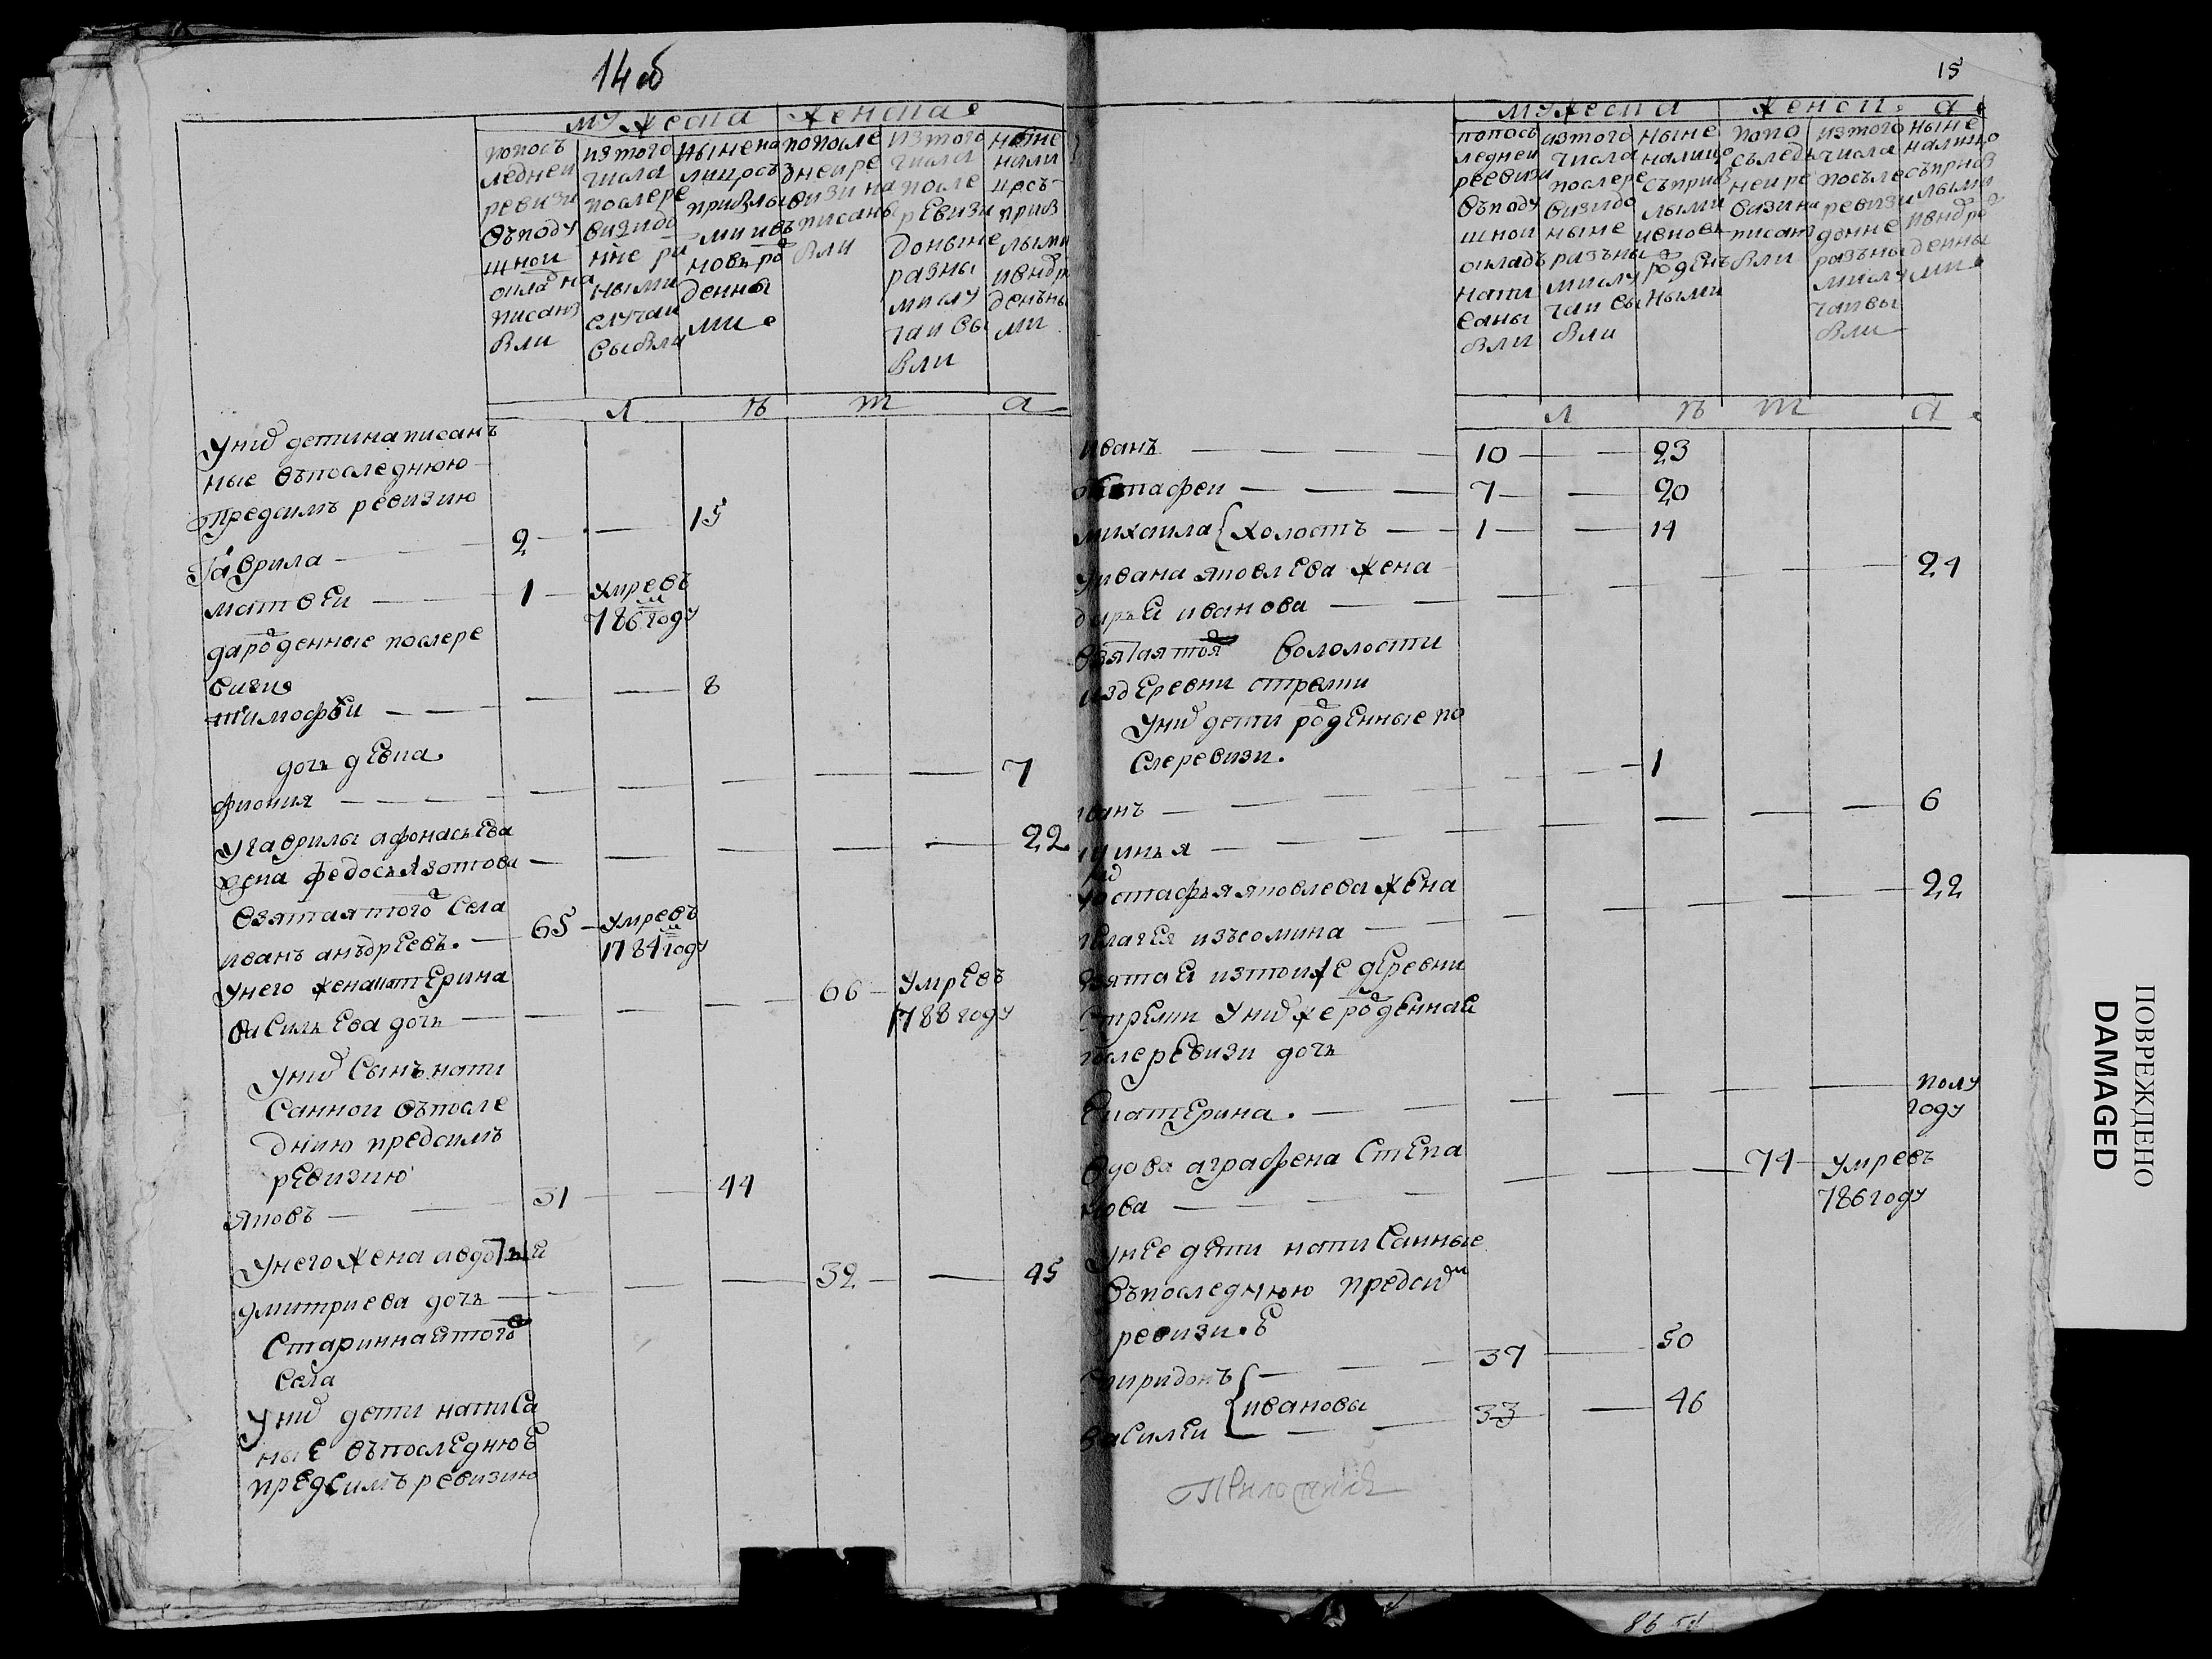 14 об
мужеска женска
попосъ
ледней
ревизи
въподу
шной
окладъ на
писаны
были
изтого
числа
послере
визидо
нне ра
ными
случаи
выбыли
ныне на
лицосъ
прибылы
ми ивъ
новъ ро
денны
ми
попосле
дней ре
визи на
писаны
были
изтого
числа
после
ревизи
доныне
разны
ми слу
чаи вы
были
ныне
нали
цосъ
приб
лыми
ивноро
денны
ми
л ѣ т а
Уних детинаписан
ные въпоследнюю
предсимъ ревизию
Гаврила 2 15
матвеи 1 умре въ
786м году
дароденные послере
визи
тимофеи 8
дочь девка
фиония 7
Угаврилы афонасьева
жена федосья зотова 22
взятаятого села
иванъ анъдреевъ 65 умре въ
1784м году
Унего жена катерина
василъева дочь 66 умре въ
1788 году
Уних сынъ напи
санной въпосле
днию предсимъ
ревизию
яковъ 31 44
Унего жена авдотья
дмитриева дочь 32 45
стариннаятого
села
Уних дети написа
ные въпоследнюю
предсимъ ревизию
15
мужеска женска
попосъ
ледней
ревизи
въподу
шной
окладъ
напи
саны
были
изтого
числа
послере
визидо
ныне
разъны
ми слу
чаи вы
были
ныне
налицо
съприб
лыми
ивновь
роденъ
ными
попо
съледъ
ней ре
визи на
писаны
были
изтого
числа
посъле
ревизи
донне
разъны
ми слу
чаи вы
были
ныне
налицо
съприб
лыми
ивнъро
денны
ми
л ѣ т а
иванъ 10 23
Евстафеи 7 20
михаила { холостъ 1 14
Уивана яковлева жена
дарья иванова 24
взятая тоя вололости
издеревни стрелки
Уних дети роденные по
слеревизи
иванъ 1
6
Уевстафья яковлева жена
пелагея изъсомина 22
взятая изтойже деревни
стрелки Унихже роденная
послеревизи дочь
Екатерина полу
году
вдова аграфена степа
нова 74 умре въ
786 году
Унее дети написанные
въпоследнюю предсим
ревизи
спиридонъ { 37 50
ивановы
василеи 33 46
ПОВРЕЖДЕНО
DAMAGED